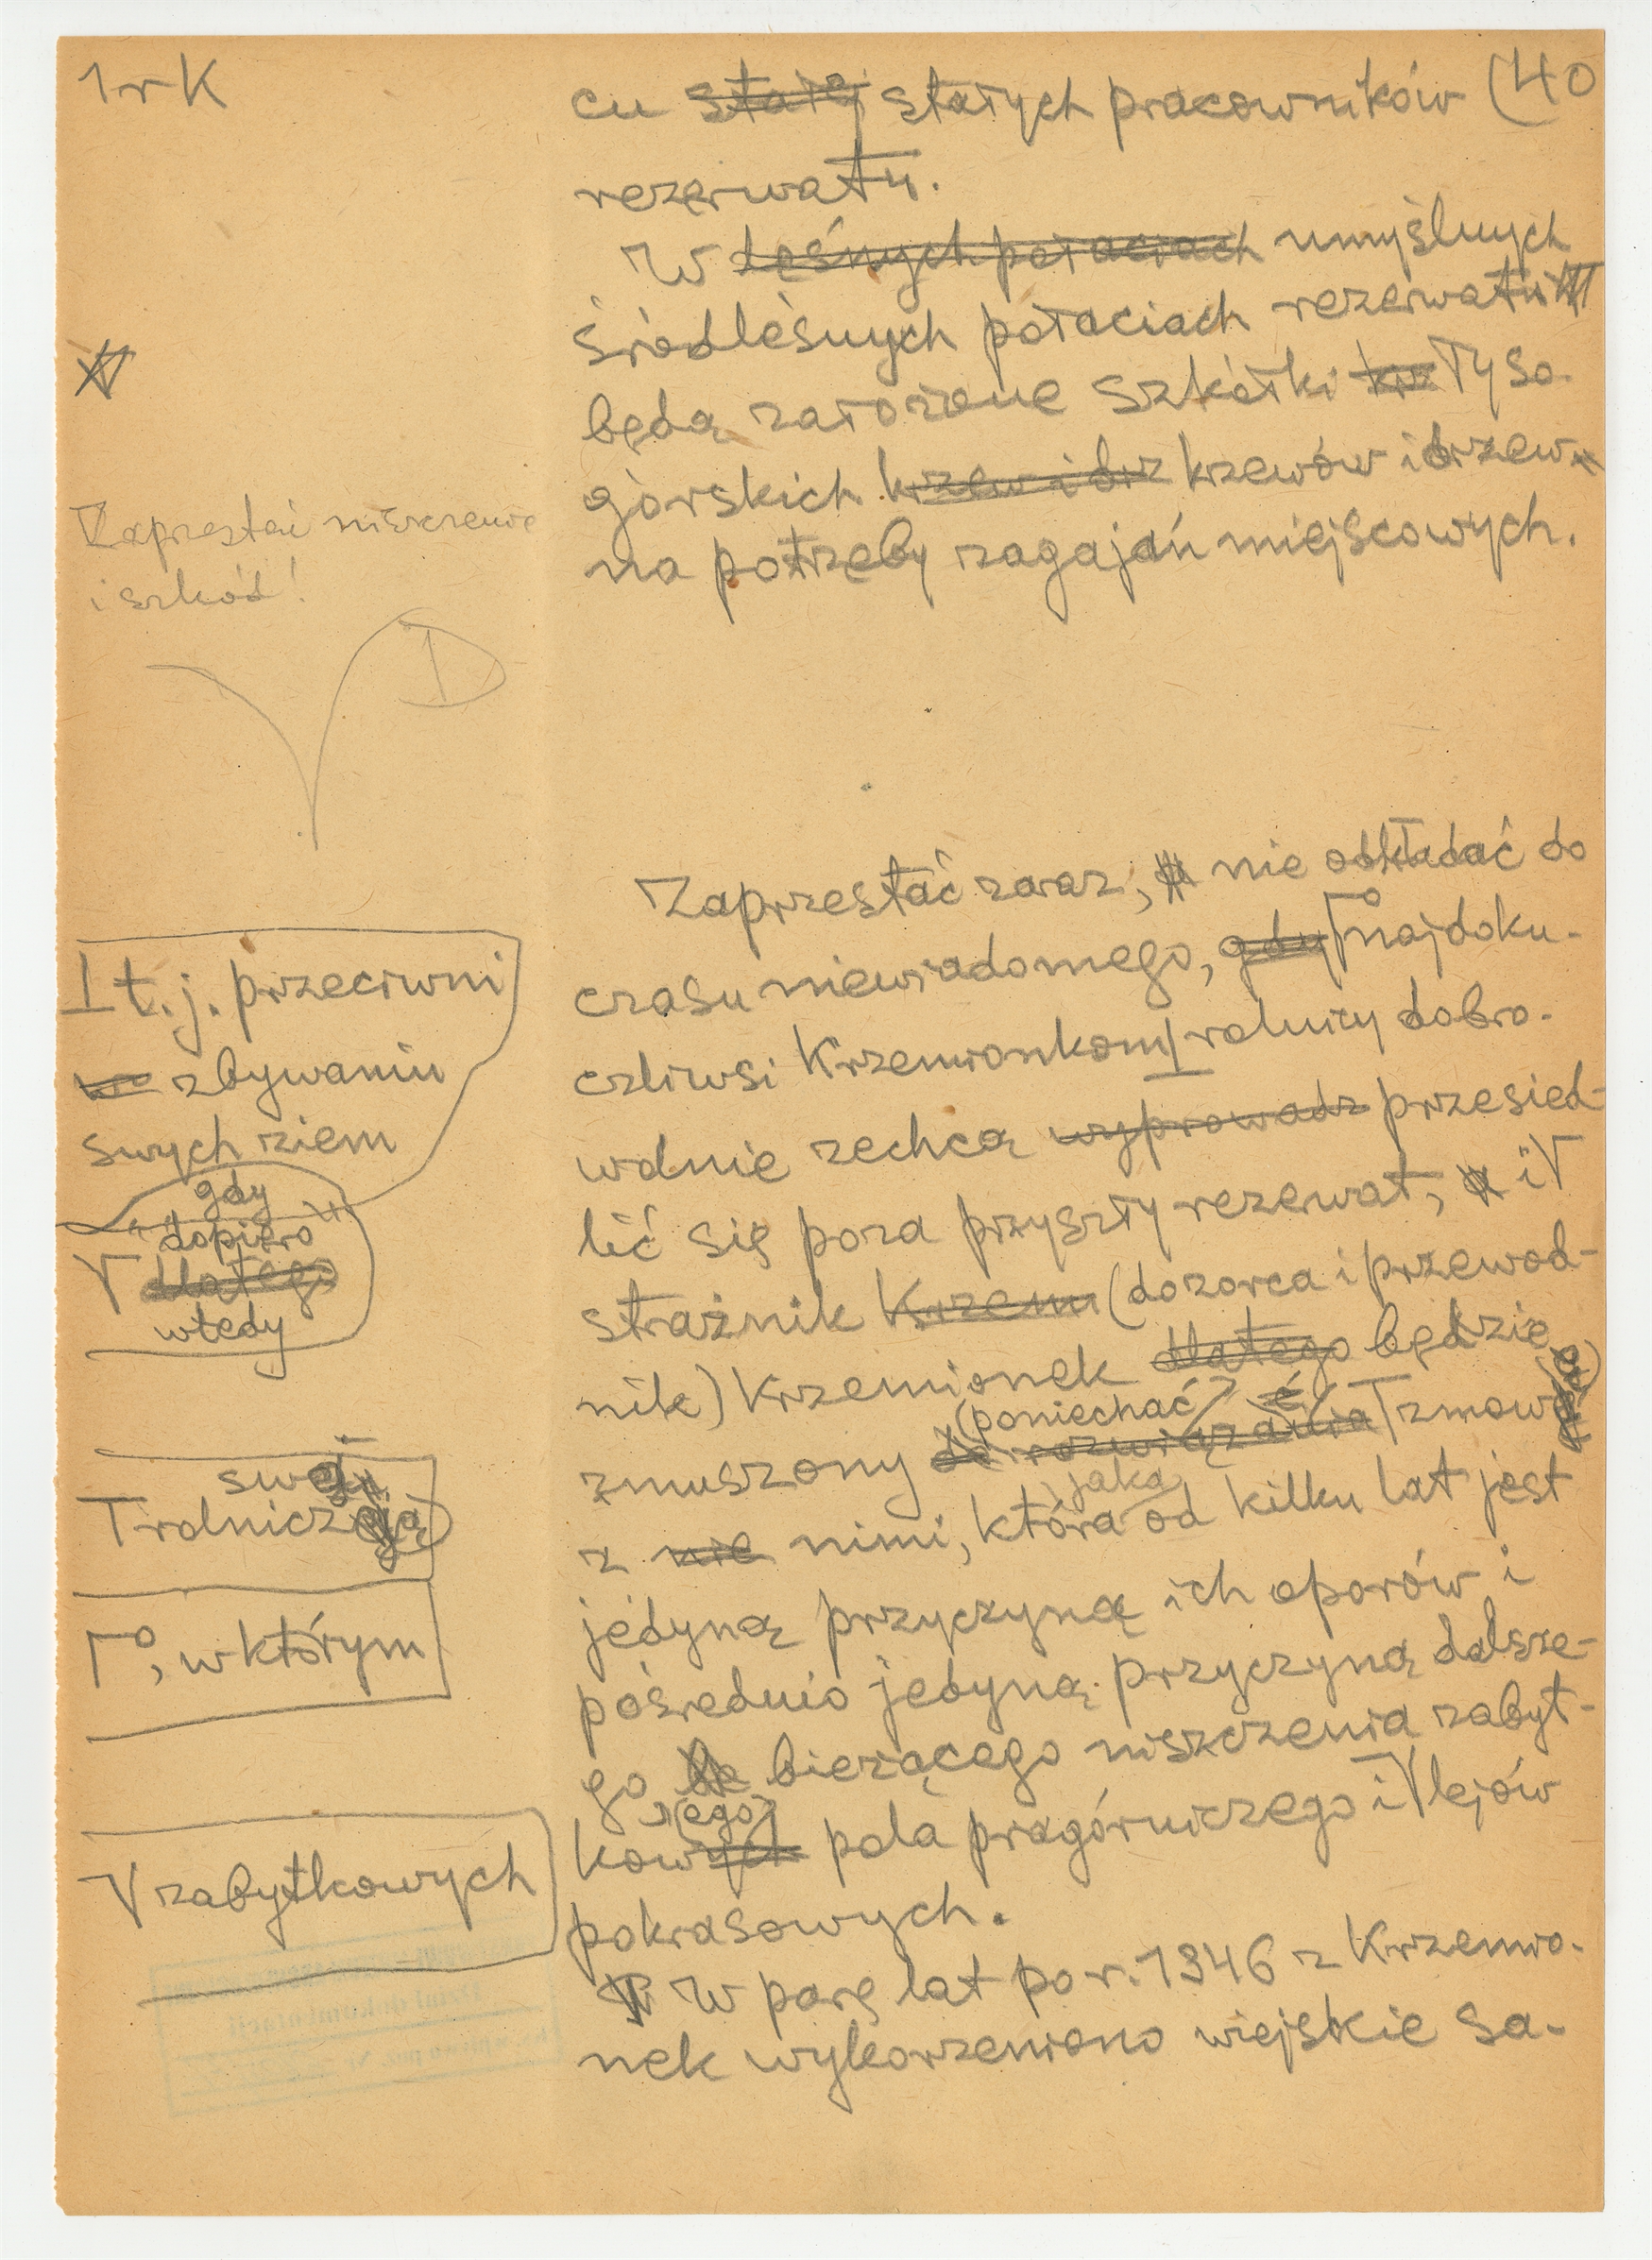 1 r K
cu stałej stałych pracowników (40
rezerwatu.
W leśnych połaciach umyślnych
śródleśnych połaciach rezerwatu
będą założone szkółki krz łyso-
górskich krzew i drz krzewów i drzew
na potrzeby zagajań miejscowych.
Zaprzestać niszczenie
i szkód!
1
Zaprzestać zaraz, nie odkładać do
czasu niewiadomego, gdy Γ° najdoku-
czliwsi Krzemionkom I rolnicy dobro-
wolnie zechcą wyprowadz przesied-
lić się poza przyszły rezerwat, a i V
strażnik Krzem (dozorca i przewod-
nik) Krzemionek dlatego będzie
(poniechać)
zmuszony do rozwiązania T zmowę
jaka
z nie nimi, która od kilku lat jest
jedyną przyczyną ich oporów i
pośrednio jedyną przyczyną dalsze-
go be bieżącego niszczenia zabyt-
(ego)
kowych pola pragórniczego i V lejów
pokrasowych.
W parę lat po r. 1946 z Krzemio-
nek wykorzeniono wiejskie sa-
I t. j. przeciwni
zbywaniu
swych ziem
gdy
dopiero
V dlatego
wtedy
swoją
T rolniczą
Γ°, w którym
V zabytkowych